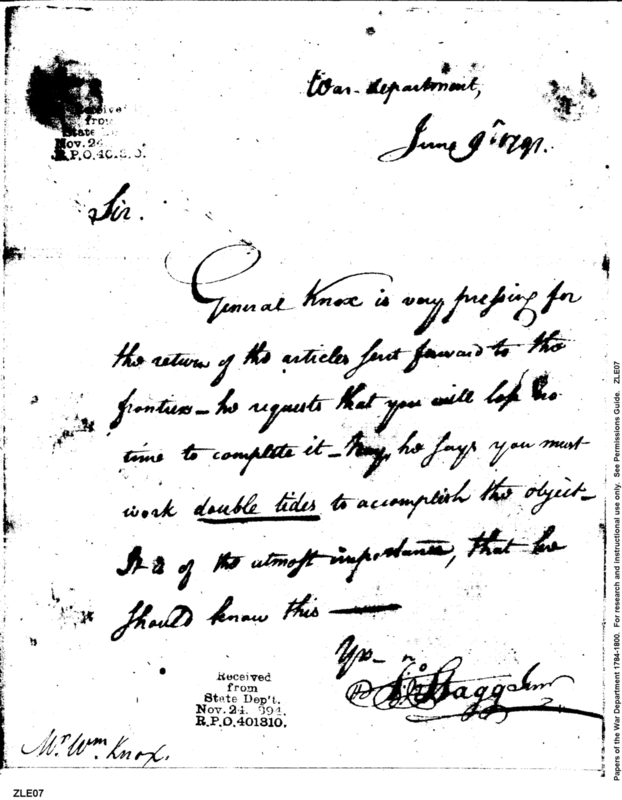 Received
from
State De
Nov. 24
R.P.O. 401310.
War-department,
June 9th 1791.
Sir.
General Knox is very pressing for
the return of the articles sent forward to the
frontiers - he requests that you will lose no
time to complete it - Nay, he says you must
work double tides to accomplish the object -
It is of the utmost importance, that he
should know this -
Yrs -
Jn Stagg Junr
Received
from
State Dep't.
Nov. 24. 894.
R.P.O. 401310.
Mr. Wm. Knox.
ZLE07
Papers of the War Department 1784-1800. For research and instructional use only. See Permissions Guide. ZLE07